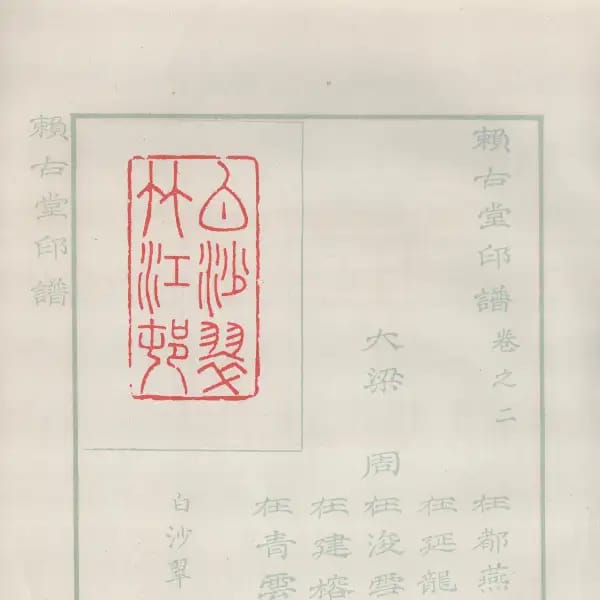 賴古堂印譜卷之二
大梁 周
在都燕
在延龍
在浚雪
在建榕
在青雲
白沙翠
竹江邨
白沙翠
賴古堂印譜